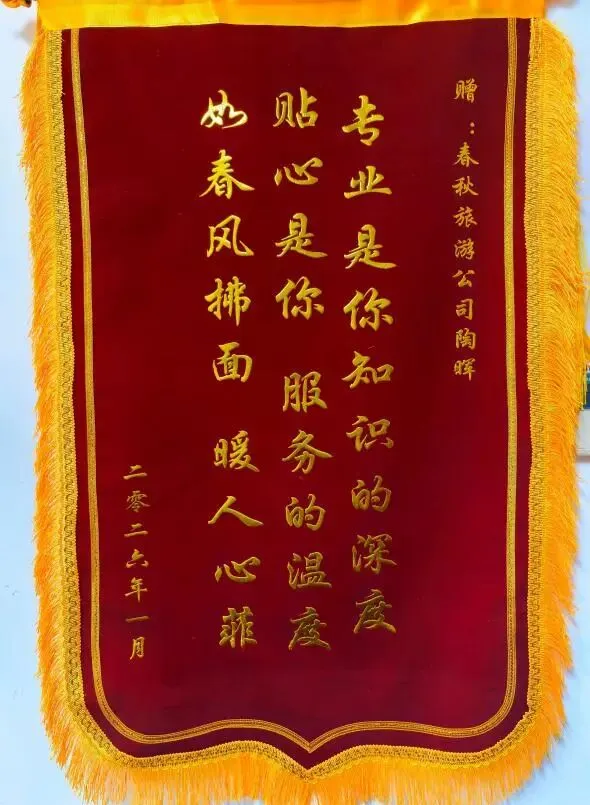 赠：春秋旅游公司陶晖
专业是你知识的深度
贴心是你 服务的温度
如春风拂面 暖人心菲
二零二六年一月